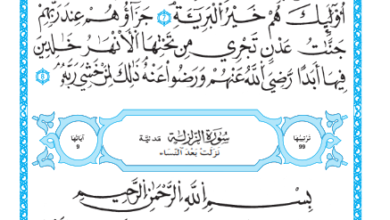 أُوْلَٰئِكَ هُمْ خَيْرُ الْبَرِيَّةِ جَزَاؤُهُمْ عِندَ رَبِّهِمْ
جَنَّاتُ عَدْنٍ تَجْرِي مِن تَحْتِهَا الْأَنْهَارُ خَالِدِينَ
فِيهَا أَبَدًا رَّضِيَ اللَّهُ عَنْهُمْ وَرَضُوا عَنْهُ ذَٰلِكَ لِمَنْ خَشِيَ رَبَّهُ
ترتيبها
99
سُورَةُ الزَّلْزَلَةِ مَدَنِيَّة
نَزَلَتْ بَعْدَ النِّسَاء
آياتها
9
بِسْمِ اللَّهِ الرَّحْمَٰنِ الرَّحِيمِ